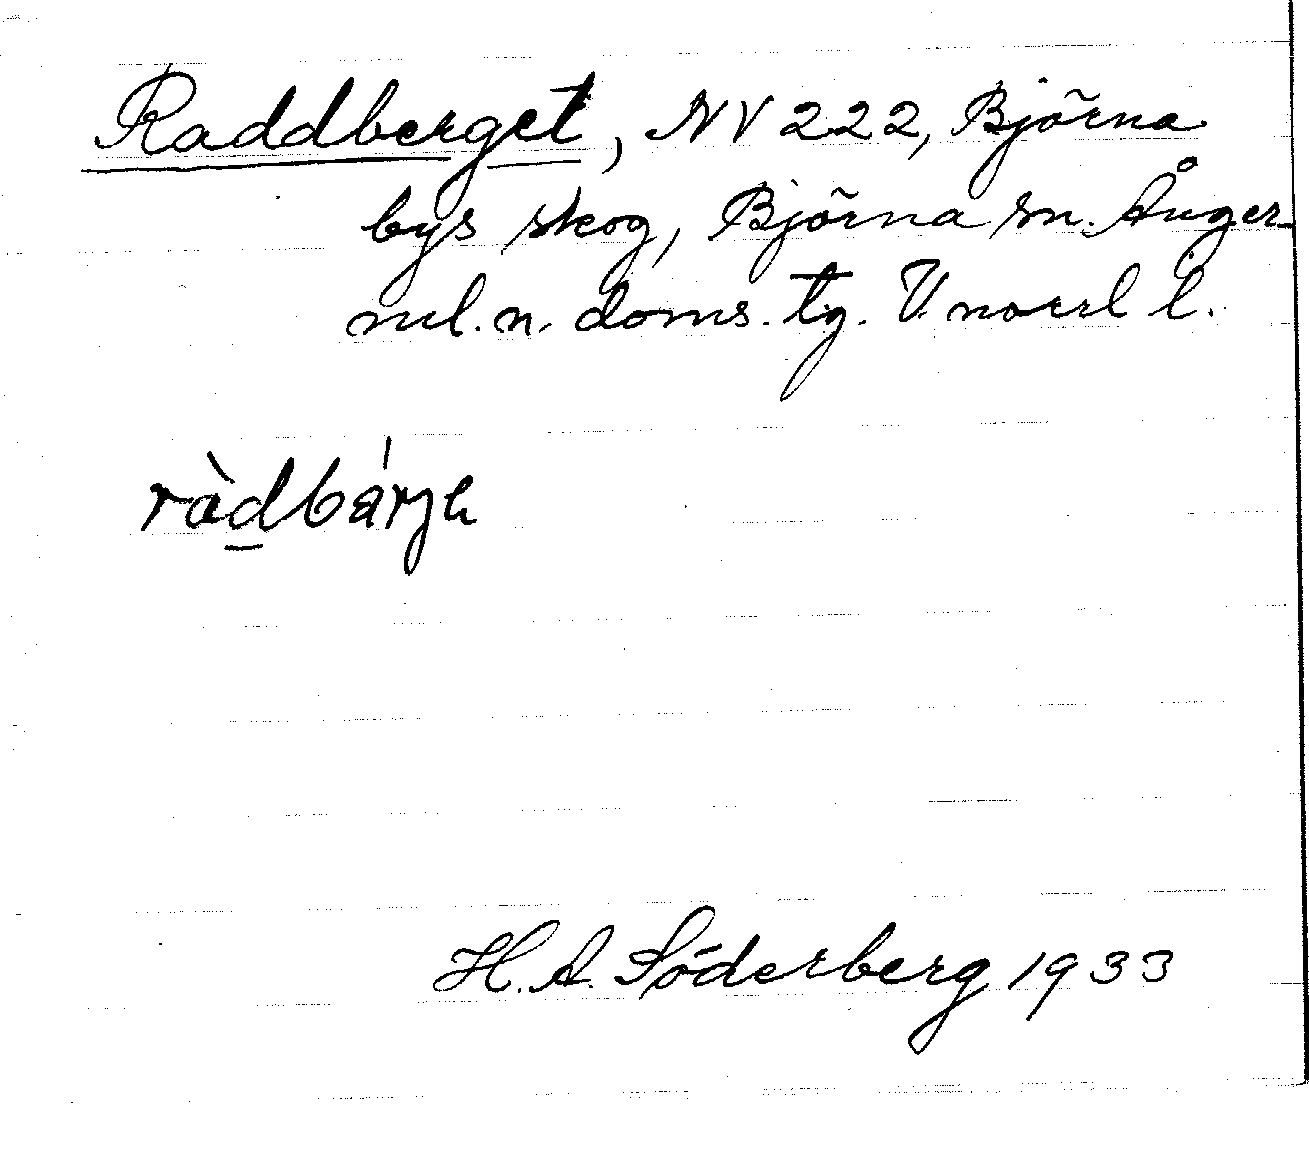 Raddberget, NV 222, Björna
bys skog, Björna sn. Ånger-
ml. n. doms. tg. V. norrl l.
ràd̲bárjɐ
H. A. Söderberg 1933